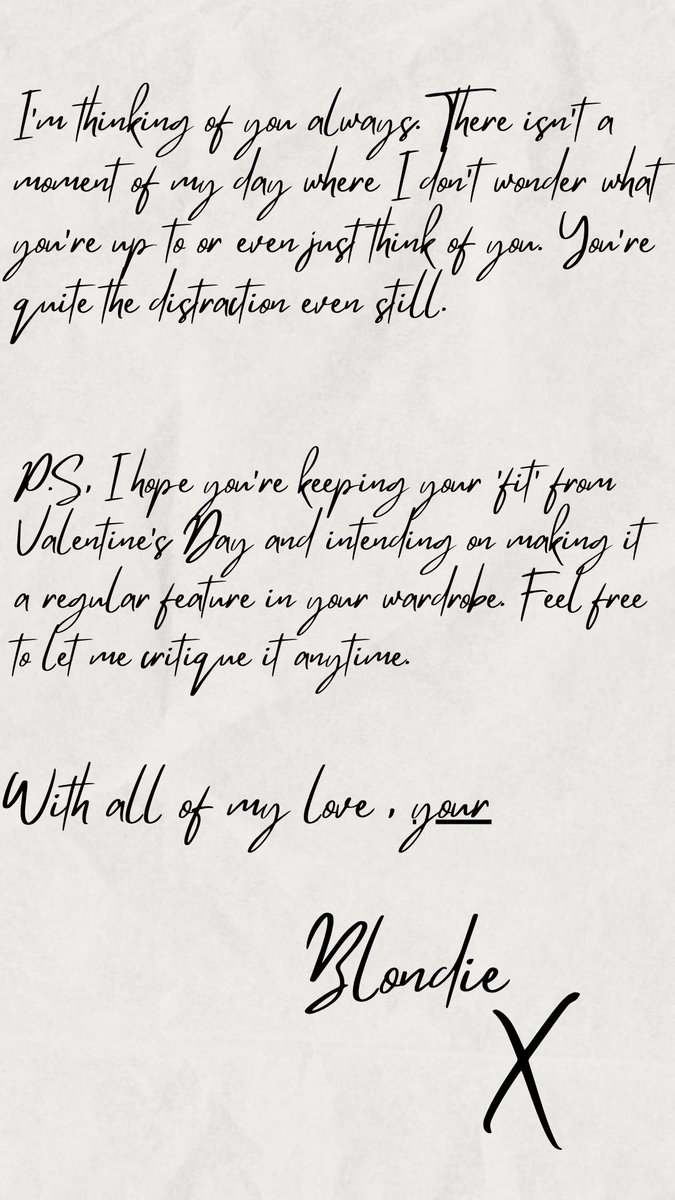 I'm thinking of you always. There isn't a
moment of my day where I don't wonder what
you're up to or even just think of you. You're
quite the distraction even still.
P.S, I hope you're keeping your 'fit' from
Valentine's Day and intending on making it
a regular feature in your wardrobe. Feel free
to let me critique it anytime.
With all of my love , your
Blondie
X